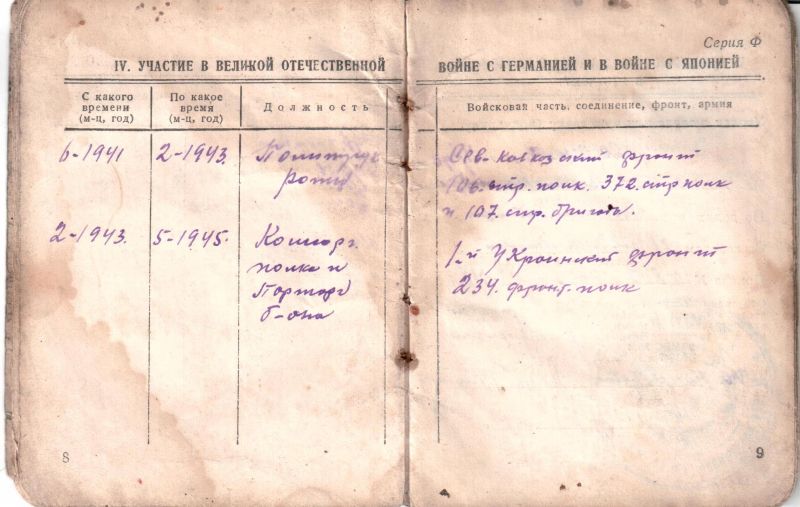 Серия Ф
IV. УЧАСТИЕ В ВЕЛИКОЙ ОТЕЧЕСТВЕННОЙ ВОЙНЕ С ГЕРМАНИЕЙ И В ВОЙНЕ С ЯПОНИЕЙ
С какого времени (м-ц, год)
По какое время (м-ц, год)
Должность
Войсковая часть, соединение, фронт, армия
6-1941 2-1943. Политрук
роты
Сев-Кавказский фронт
106. стр. полк. 372. стр полк
и 107. стр. бригада.
2-1943. 5-1945. Комсорг.
полка и
Парторг
б-она
1-й Украинский фронт
234. фронт. полк
8
9